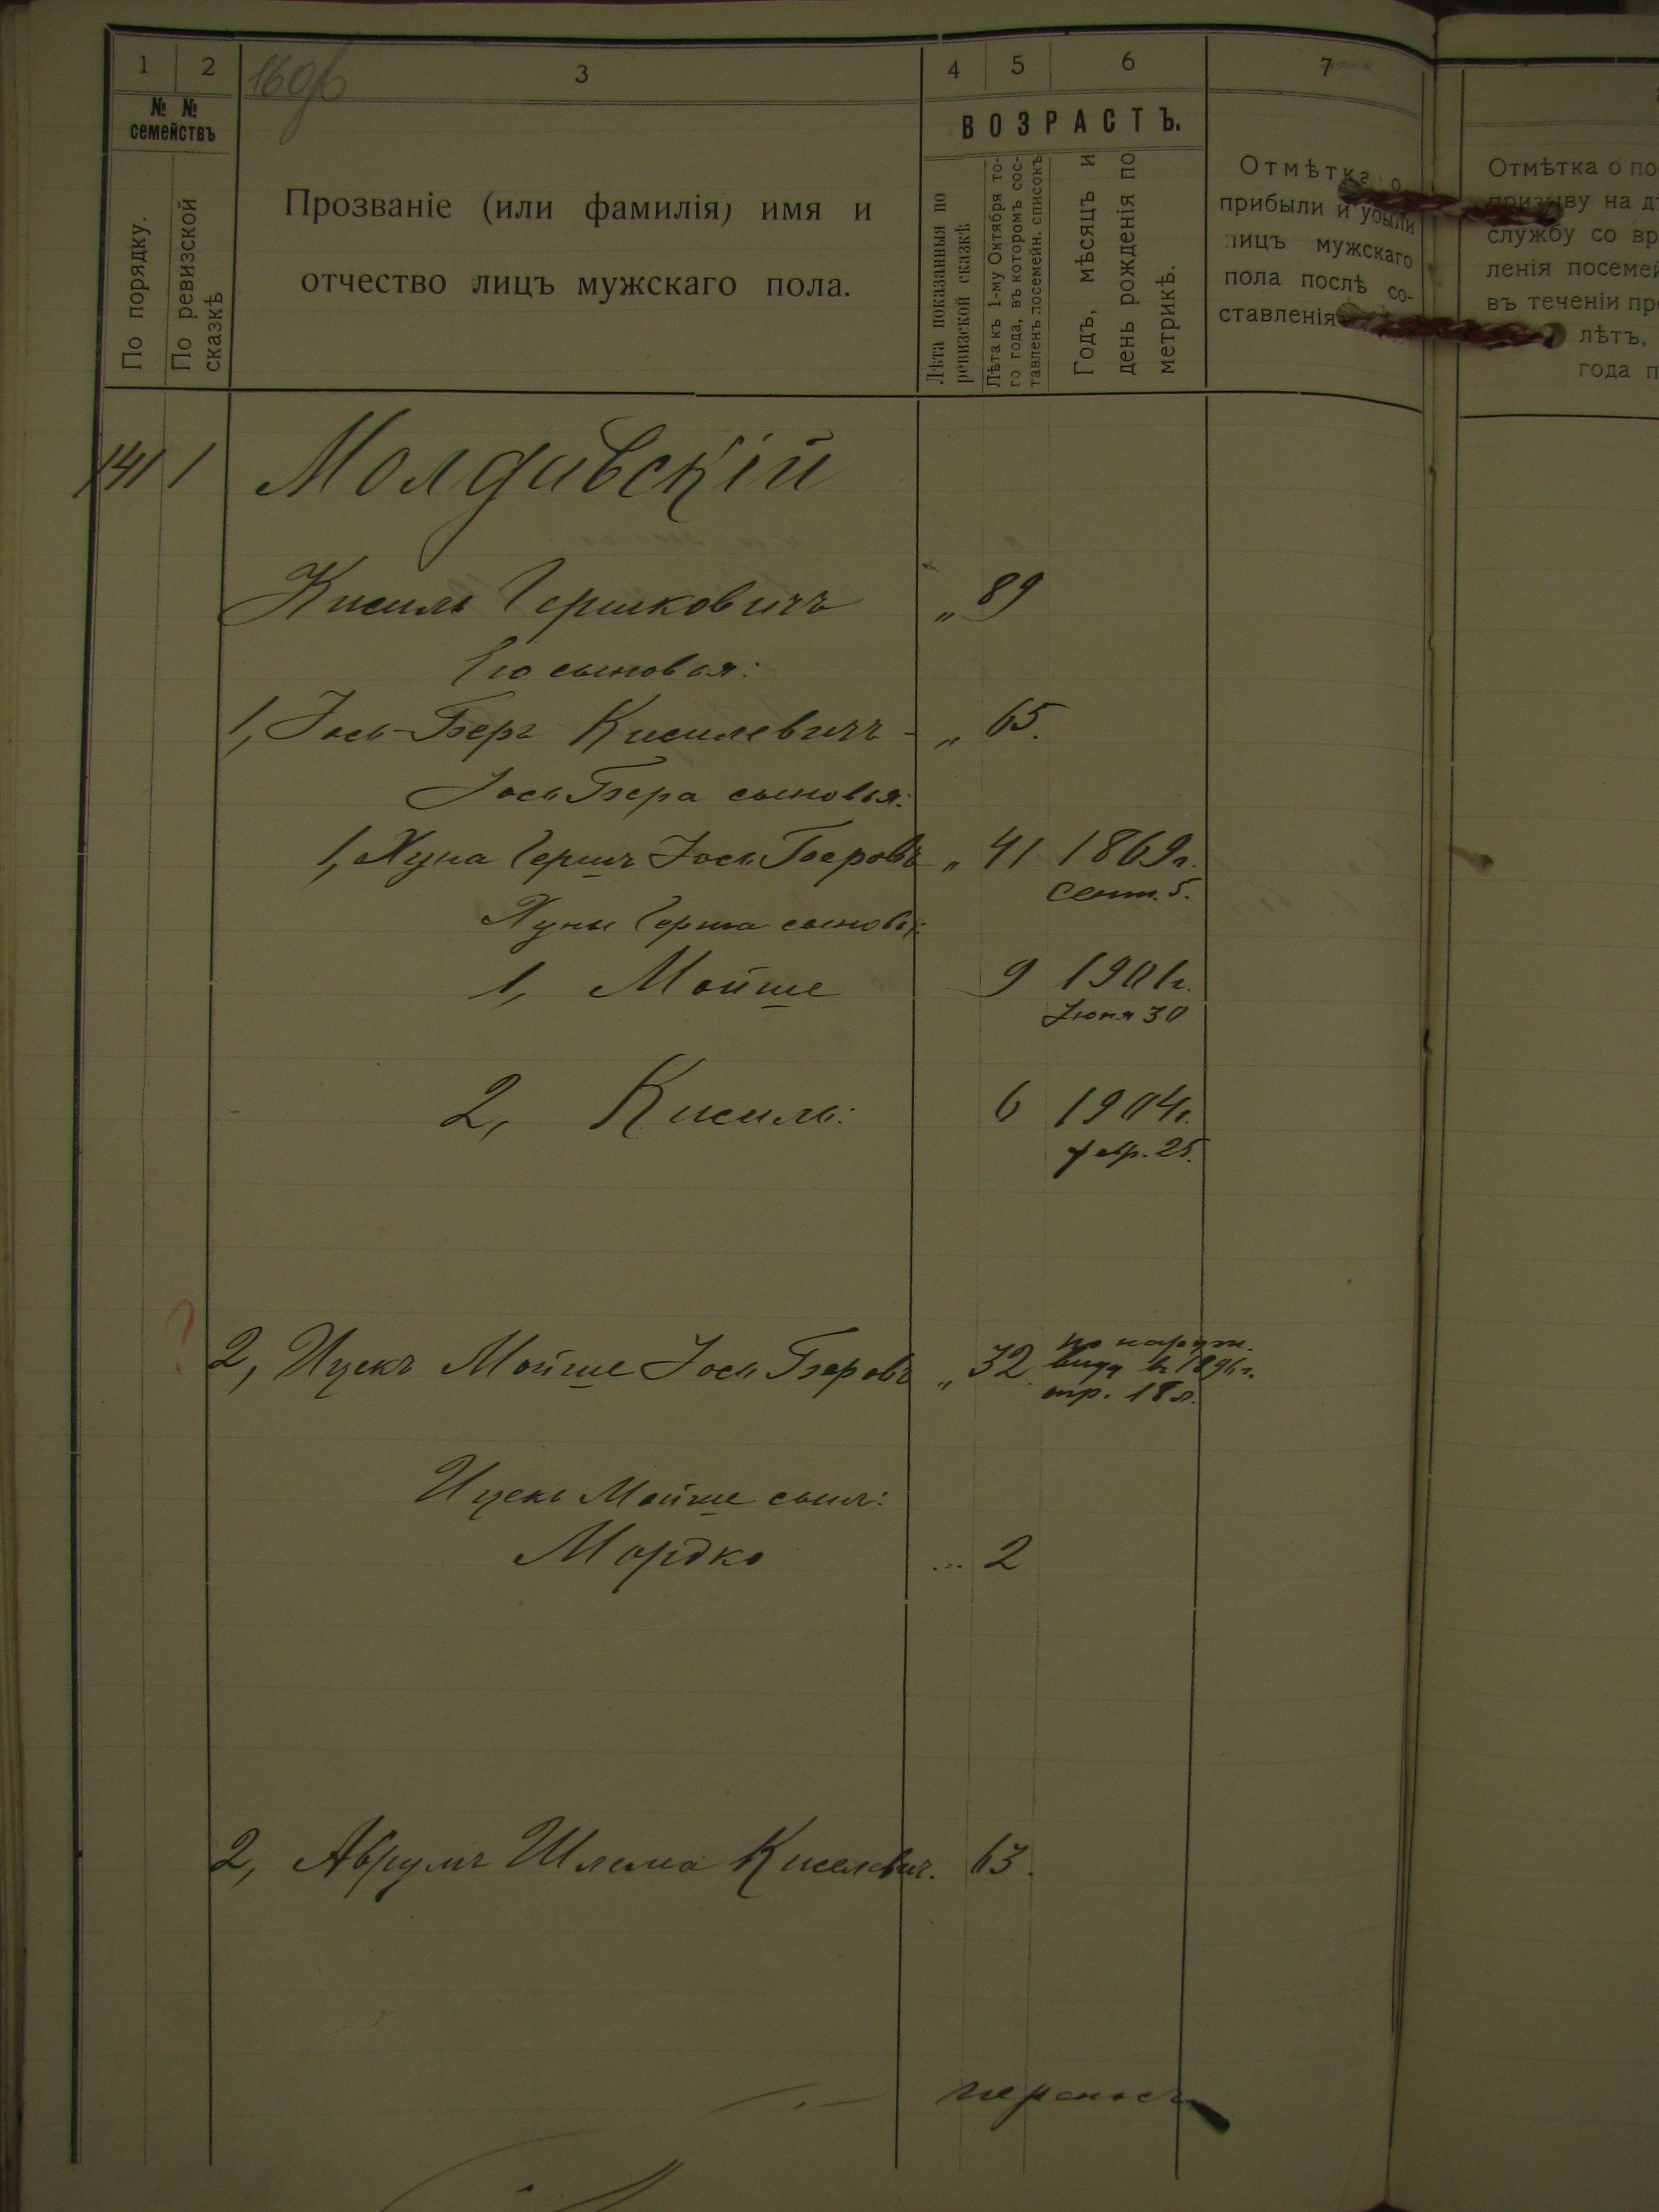 1 2 1696 3 4 5 6 7
№ № семействъ
ВОЗРАСТЪ.
По порядку.
По ревизской сказкѣ
Прозваніе (или фамилія) имя и
отчество лицъ мужскаго пола.
Лѣта показанныя по
ревизской сказкѣ
Лѣта къ 1-му Октября то-
го года, въ которомъ сос-
тавленъ посемейн. списокъ
Годъ, мѣсяцъ и
день рожденія по
метрикѣ.
Отмѣтка о
прибыли и убыли
лицъ мужскаго
пола послѣ со-
ставленія
Отмѣтка о по
призыву на д
службу со вр
ленія посемей
въ теченіи пр
лѣтъ.
года п
141 1 Молдавскій
Кисиль Гершковичъ „ 89
Его сыновья:
1, Іось-Беръ Кисилевичъ - „ 65.
Іось Бера сыновья:
1, Хуна Гершъ Іось Беровъ „ 41 1869г.
Сент. 5.
Хуны Герша сыновья:
1, Мойше 9 1901г.
Іюня 30
2, Кисиль: 6 1904г.
февр. 25.
?
2, Ицекъ Мойше Іось Беровъ „ 32 по наруж.
виду въ 1896г.
опр. 18 л.
Ицекъ Мойше сынъ:
Мордко ... 2
2, Аврумъ Шлема Киселевич. 63.
переносъ